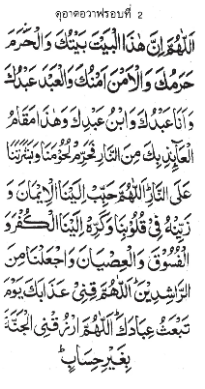 ดุอาตอวาฟรอบที่ 2
اَللّٰهُمَّ اِنَّ هٰذَا الْبَيْتَ بَيْتُكَ وَالْحَرَمَ
حَرَمُكَ وَالْاَمْنَ اَمْنُكَ وَالْعَبْدَ عَبْدُكَ
وَاَنَا عَبْدُكَ وَابْنُ عَبْدِكَ وَهٰذَا مَقَامُ
الْعَآئِذِ بِكَ مِنَ النَّارِ فَحَرِّمْ لُحُوْمَنَا وَبَشَرَتَنَا
عَلَى النَّارِ اَللّٰهُمَّ حَبِّبْ اِلَيْنَا الْاِيْمَانَ وَ
زَيِّنْهُ فِيْ قُلُوْبِنَا وَكَرِّهْ اِلَيْنَا الْكُفْرَ وَ
الْفُسُوْقَ وَالْعِصْيَانَ وَاجْعَلْنَا مِنَ
الرَّاشِدِيْنَ اَللّٰهُمَّ قِنِيْ عَذَابَكَ يَوْمَ
تَبْعَثُ عِبَادَكَ اَللّٰهُمَّ ارْزُقْنِي الْجَنَّةَ
بِغَيْرِ حِسَابٍ